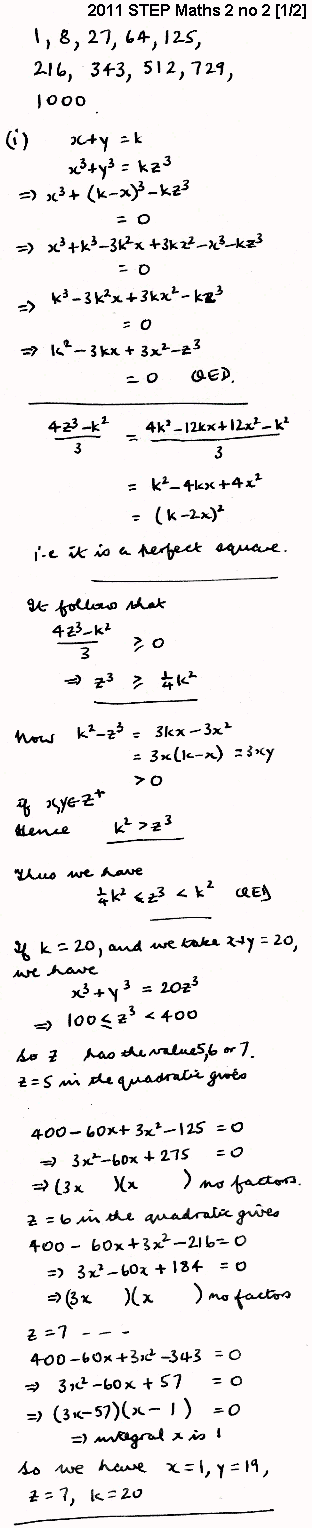 2011 STEP Maths 2 no 2 [1/2]
1, 8, 27, 64, 125,
216, 343, 512, 729,
1000
(i) x+y = k
x³+y³ = kz³
⇒ x³ + (k-x)³ - kz³
= 0
⇒ x³+k³-3k²x+3kx²-x³-kz³
= 0
⇒ k³-3k²x+3kx²-kz³
= 0
⇒ k²-3kx+3x²-z³
= 0 QED.
(4z³-k²)/3 = (4k²-12kx+12x²-k²)/3
= k²-4kx+4x²
= (k-2x)²
i.e it is a perfect square.
It follows that
(4z³-k²)/3 ≥ 0
⇒ z³ ≥ ¼k²
Now k²-z³ = 3kx-3x²
= 3x(k-x) = 3xy
> 0
if x,y∈Z⁺
Hence k² > z³
Thus we have
¼k² ≤ z³ < k² QED
If k = 20, and we take x+y = 20,
we have
x³+y³ = 20z³
⇒ 100 ≤ z³ < 400
So z has the values 5, 6 or 7.
z=5 in the quadratic gives
400-60x+3x²-125 = 0
⇒ 3x²-60x+275 = 0
⇒ (3x )(x ) no factors.
z = 6 in the quadratic gives
400-60x+3x²-216=0
⇒ 3x²-60x+184 = 0
⇒ (3x )(x ) no factors
z=7 - - -
400-60x+3x²-343 = 0
⇒ 3x²-60x+57 = 0
⇒ (3x-57)(x-1) = 0
⇒ integral x is 1
So we have x=1, y=19,
z=7, k=20